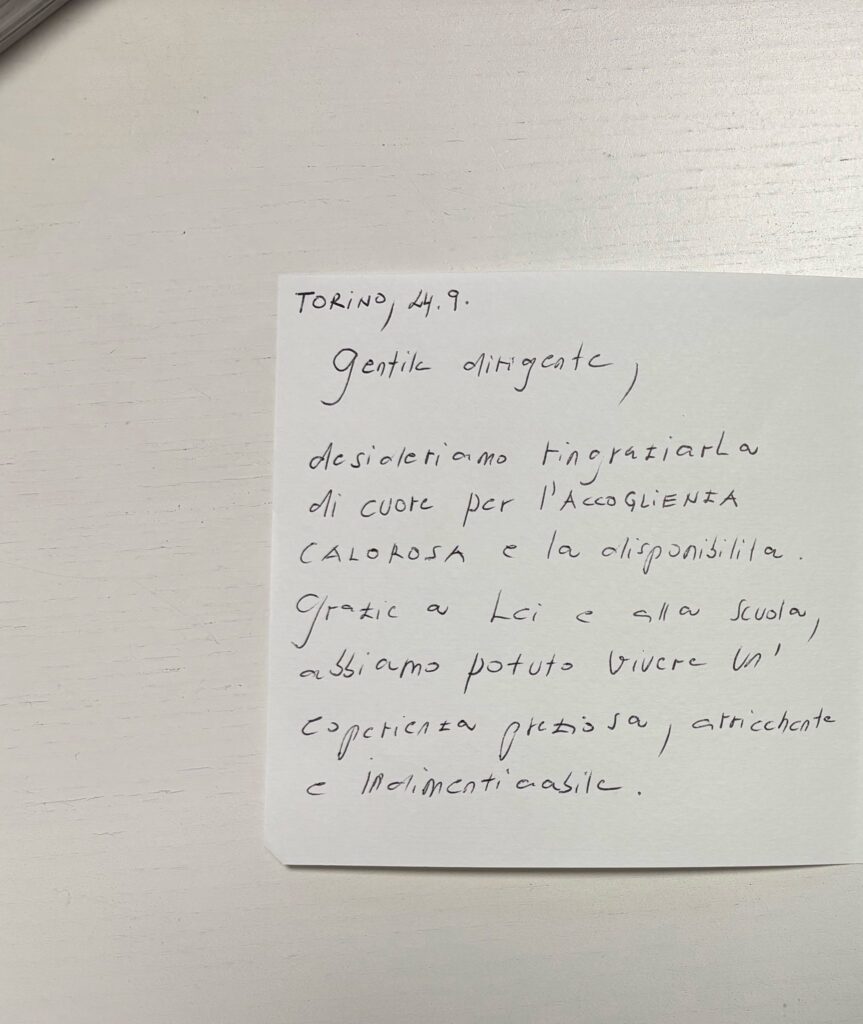 TORINO, 24.9.
Gentile dirigente,
desideriamo ringraziarLa
di cuore per l'ACCOGLIENZA
CALOROSA e la disponibilità.
Grazie a Lei e alla scuola,
abbiamo potuto vivere un'
esperienza preziosa, arricchente
e indimenticabile.